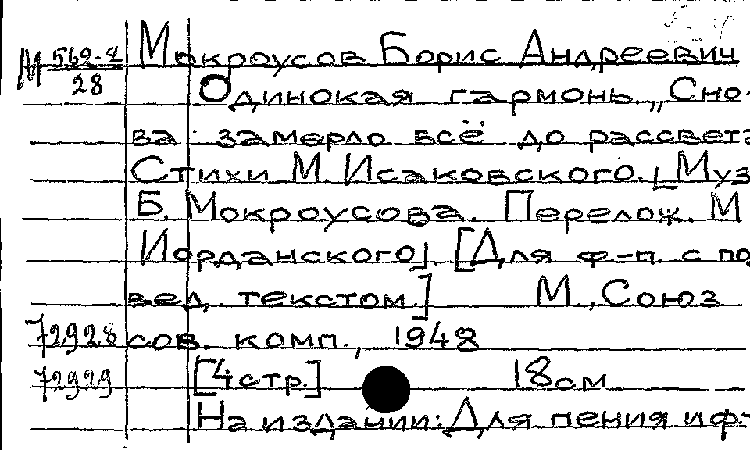 М 562-2 Мокроусов Борис Андреевич
28
Одинокая гармонь „Сно-
ва замерло всё до рассвета
Стихи М. Исаковского. [Муз
Б. Мокроусова. Перелож. М
Иорданского]. [Для ф-п. с по
вед. текстом] М., Союз
72928 сов. комп., 1948
72929 [4 стр.] 18 см
На издании: Для пения и ф-